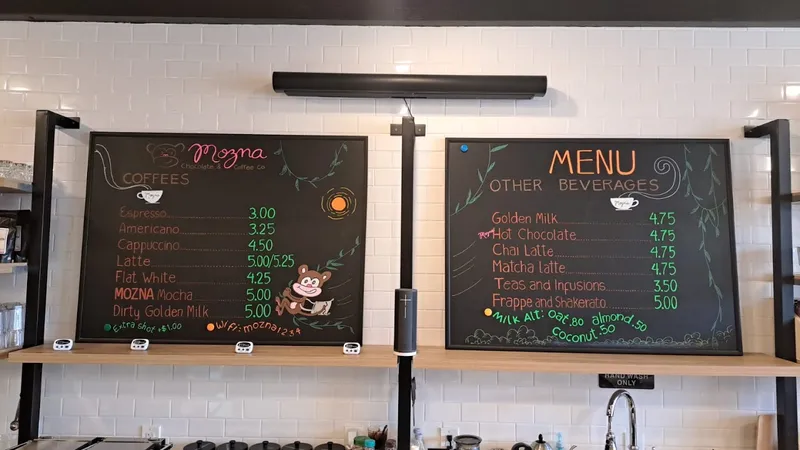 Mozna
Chocolate & Coffee Co
COFFEES
Mozna
Espresso 3.00
Americano 3.25
Cappuccino 4.50
Latte 5.00/5.25
Flat White 4.25
MOZNA Mocha 5.00
Dirty Golden Milk 5.00
Extra shot +$1.00
Wifi: mozna1234
MENU
OTHER BEVERAGES
Mozna
Golden Milk 4.75
Hot Chocolate 4.75
Chai Latte 4.75
Matcha latte 4.75
Teas and Infusions 3.50
Frappe and Shakerato 5.00
Milk Alt: oat .80 almond .50
Coconut .50
HAND WASH
ONLY